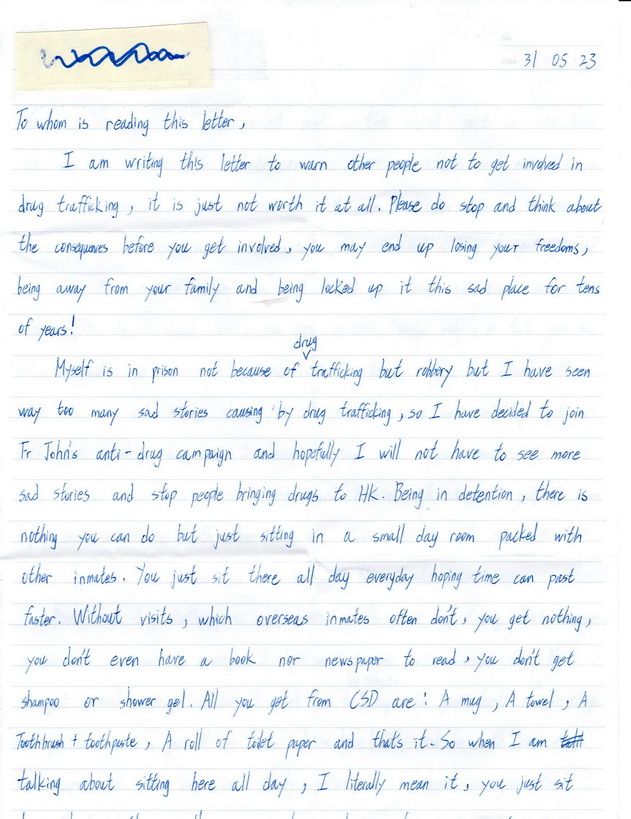 No.
Date 31 · 05 · 23
To whom is reading this letter,
I am writing this letter to warn other people not to get involved in
drug trafficking, it is just not worth it at all. Please do stop and think about
the consequences before you get involved, you may end up losing your freedoms,
being away from your family and being locked up it this sad place for tens
of years!
drug
Myself is in prison not because of trafficking but robbery but I have seen
way too many sad stories causing by drug trafficking, so I have decided to join
Fr John's anti-drug campaign and hopefully I will not have to see more
sad stories and stop people bringing drugs to HK. Being in detention, there is
nothing you can do but just sitting in a small day room packed with
other inmates. You just sit there all day everyday hoping time can past
faster. Without visits, which overseas inmates often don't, you get nothing,
you don't even have a book nor newspaper to read, you don't get
shampoo or shower gel. All you get from CSD are: A mug, A towel, A
Toothbrush + toothpaste, A roll of toilet paper and that's it. So when I am
talking about sitting here all day, I literally mean it, you just sit